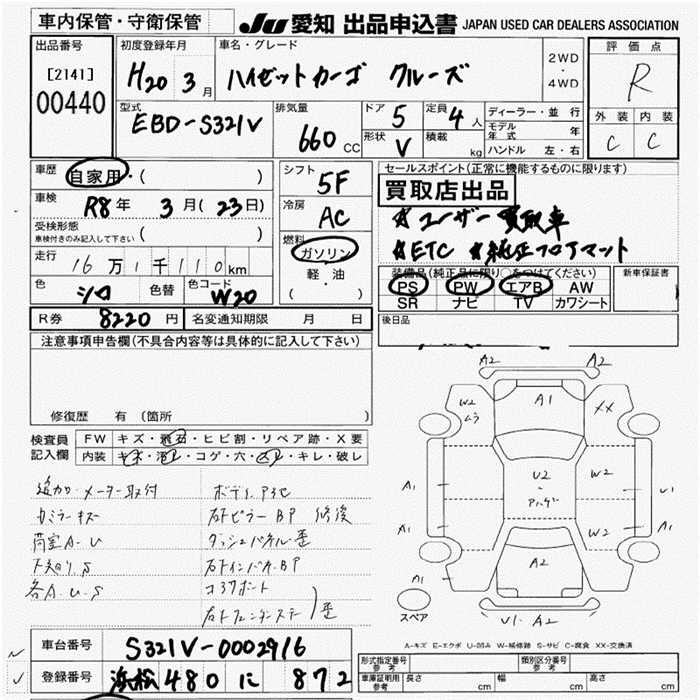 車内保管・守衛保管 JU 愛知 出品申込書 JAPAN USED CAR DEALERS ASSOCIATION
出品番号 初度登録年月 車名・グレード 2WD・4WD 評価点
[2141] 00440 H20 3月 ハイゼットカーゴ クルーズ R
型式 排気量 ドア 5 定員 4人 ディーラー・並行 外装 内装
EBD-S321V 660CC 形状 V 積載 kg モデル年式 年 C C
ハンドル 左・右
車歴 自家用・( ) シフト 5F セールスポイント(正常に機能するものに限ります)
車検 R8年 3月(23日) 冷房 AC 買取店出品
受検形態 車検付きのみ記入して下さい ( ) ☆ユーザー買取車
走行 16万1千110km 燃料 ガソリン・軽油 ( ) ☆ETC ☆純正フロアマット
色 シロ 色替 色コード W20 装備品(純正品に限り○をつけてください) 新車保証書
PS PW エアB AW
SR ナビ TV カワシート
R券 8220円 名変通知期限 月 日 後日品
注意事項申告欄(不具合内容等は具体的に記入して下さい)
修復歴 有 (箇所
検査員記入欄 FW キズ・飛石・ヒビ割・リペア跡・X要
内装 キズ・汚レ・コゲ・穴・スレ・キレ・破レ
追加メーター取付
カミラーキズ 右トピラーBP 修後
荷室A.U ダッシュパネル歪
下廻りS 右トインパネBP
各A.U.S コアサポート
右トフェンダステー 歪
A2 A2
W2 ムラ A1 XX
A1 U2 W2 U1
アハゲ
A1 W2 A1
A1 A2
スペア U1. A2
A-キズ E-エクボ U-凹み W-補修跡 S-サビ C-腐食 XX-交換済
車台番号 S321V-0002916
登録番号 浜松 480 に 872
形式指定番号 参考 類別区分番号 参考
車庫証明用 参考 長さ cm 幅 cm 高さ cm